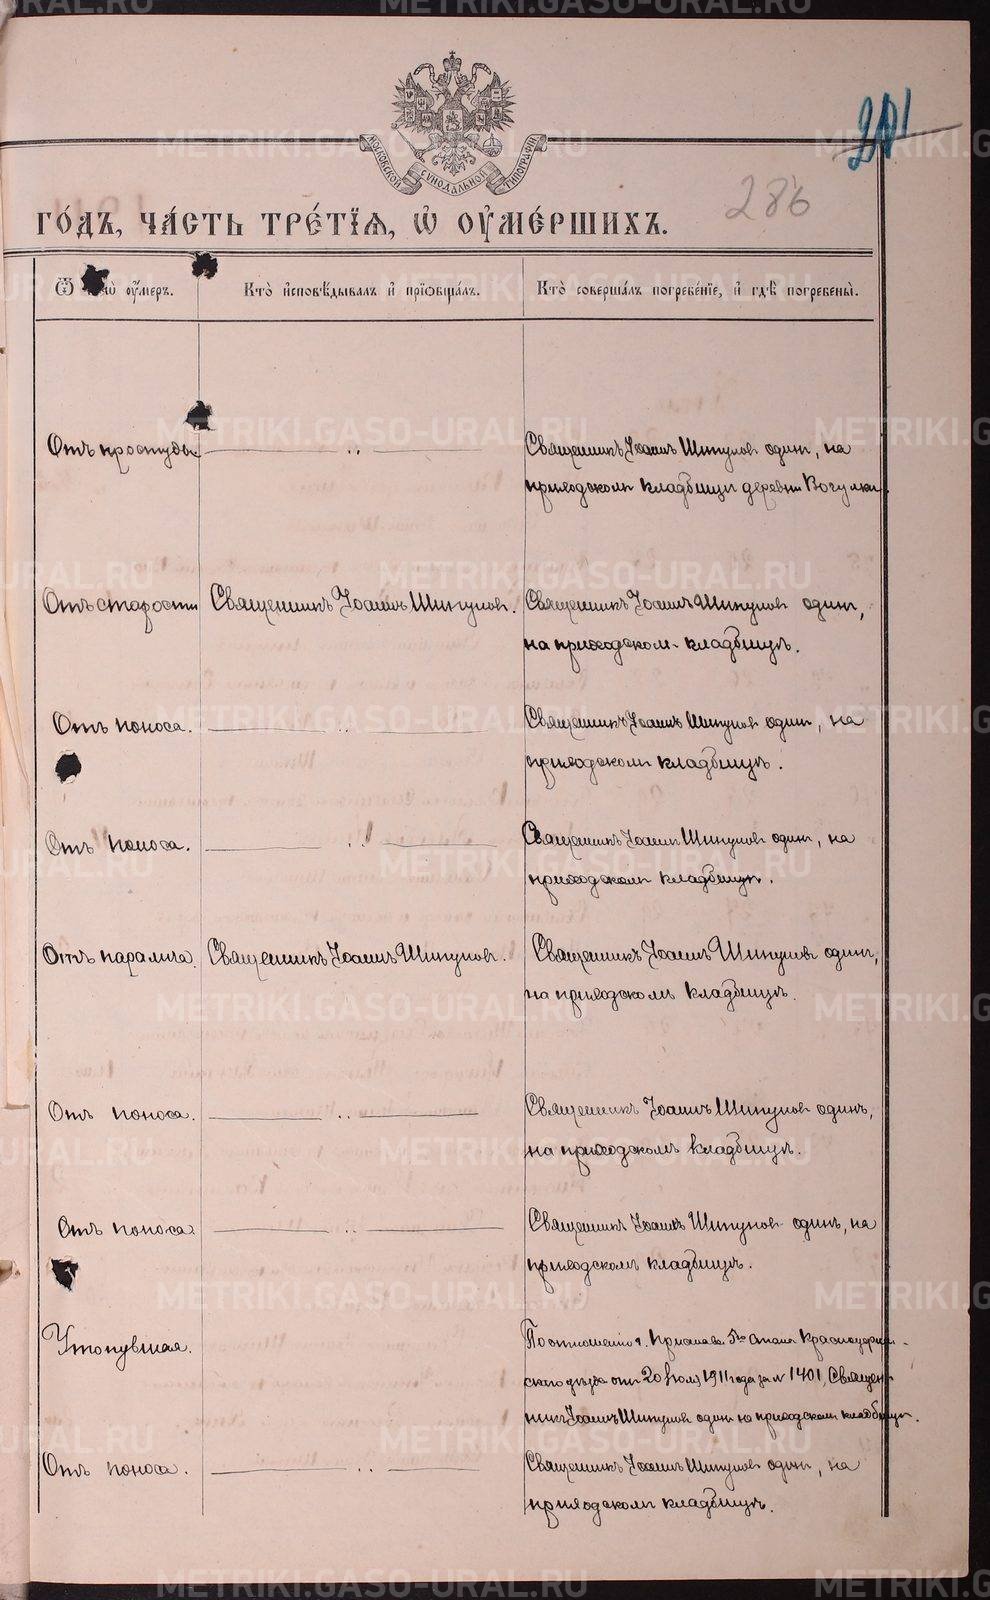 МОСКОВСКОЙ СѴНОДАЛЬНОЙ ТИПОГРАФІИ
286
ГО́ДЪ, ЧА́СТЬ ТРЕ́ТІѦ, Ѽ ОУ҆МЕ́РШИХЪ.
Ѿ оу҆́меръ.
Кто̀ и҆сповѣ́дывалъ и҆ прїѡбща́лъ.
Кто̀ соверша́лъ погребе́нїе, и҆ гдѣ̀ погребены̀.
Отъ простуды
Священникъ Іоаннъ Шипуловъ один, на
приходском кладбищѣ деревни Вогулки.
Отъ старости
Священникъ Іоаннъ Шипуловъ.
Священникъ Іоаннъ Шипуловъ один,
на приходском кладбищѣ.
Отъ поноса.
Священникъ Іоаннъ Шипуловъ один, на
приходском кладбищѣ.
Отъ поноса.
Священникъ Іоаннъ Шипуловъ один, на
приходском кладбищѣ.
Отъ паралича.
Священникъ Іоаннъ Шипуловъ.
Священникъ Іоаннъ Шипуловъ один,
на приходскомъ кладбищѣ.
Отъ поноса.
Священникъ Іоаннъ Шипуловъ одинъ,
на приходскомъ кладбищѣ.
Отъ поноса.
Священникъ Іоаннъ Шипуловъ одинъ, на
приходскомъ кладбищѣ.
Утонувшая.
По отношенію г. Пристава 5го стана Красноуфим-
скаго уѣзда отъ 20 Іюля 1911 года за № 1401, Священ
никъ Іоаннъ Шипуловъ один на приходском кладбищѣ.
Отъ поноса.
Священникъ Іоаннъ Шипуловъ один, на
приходском кладбищѣ.
METRIKI.GASO-URAL.RU